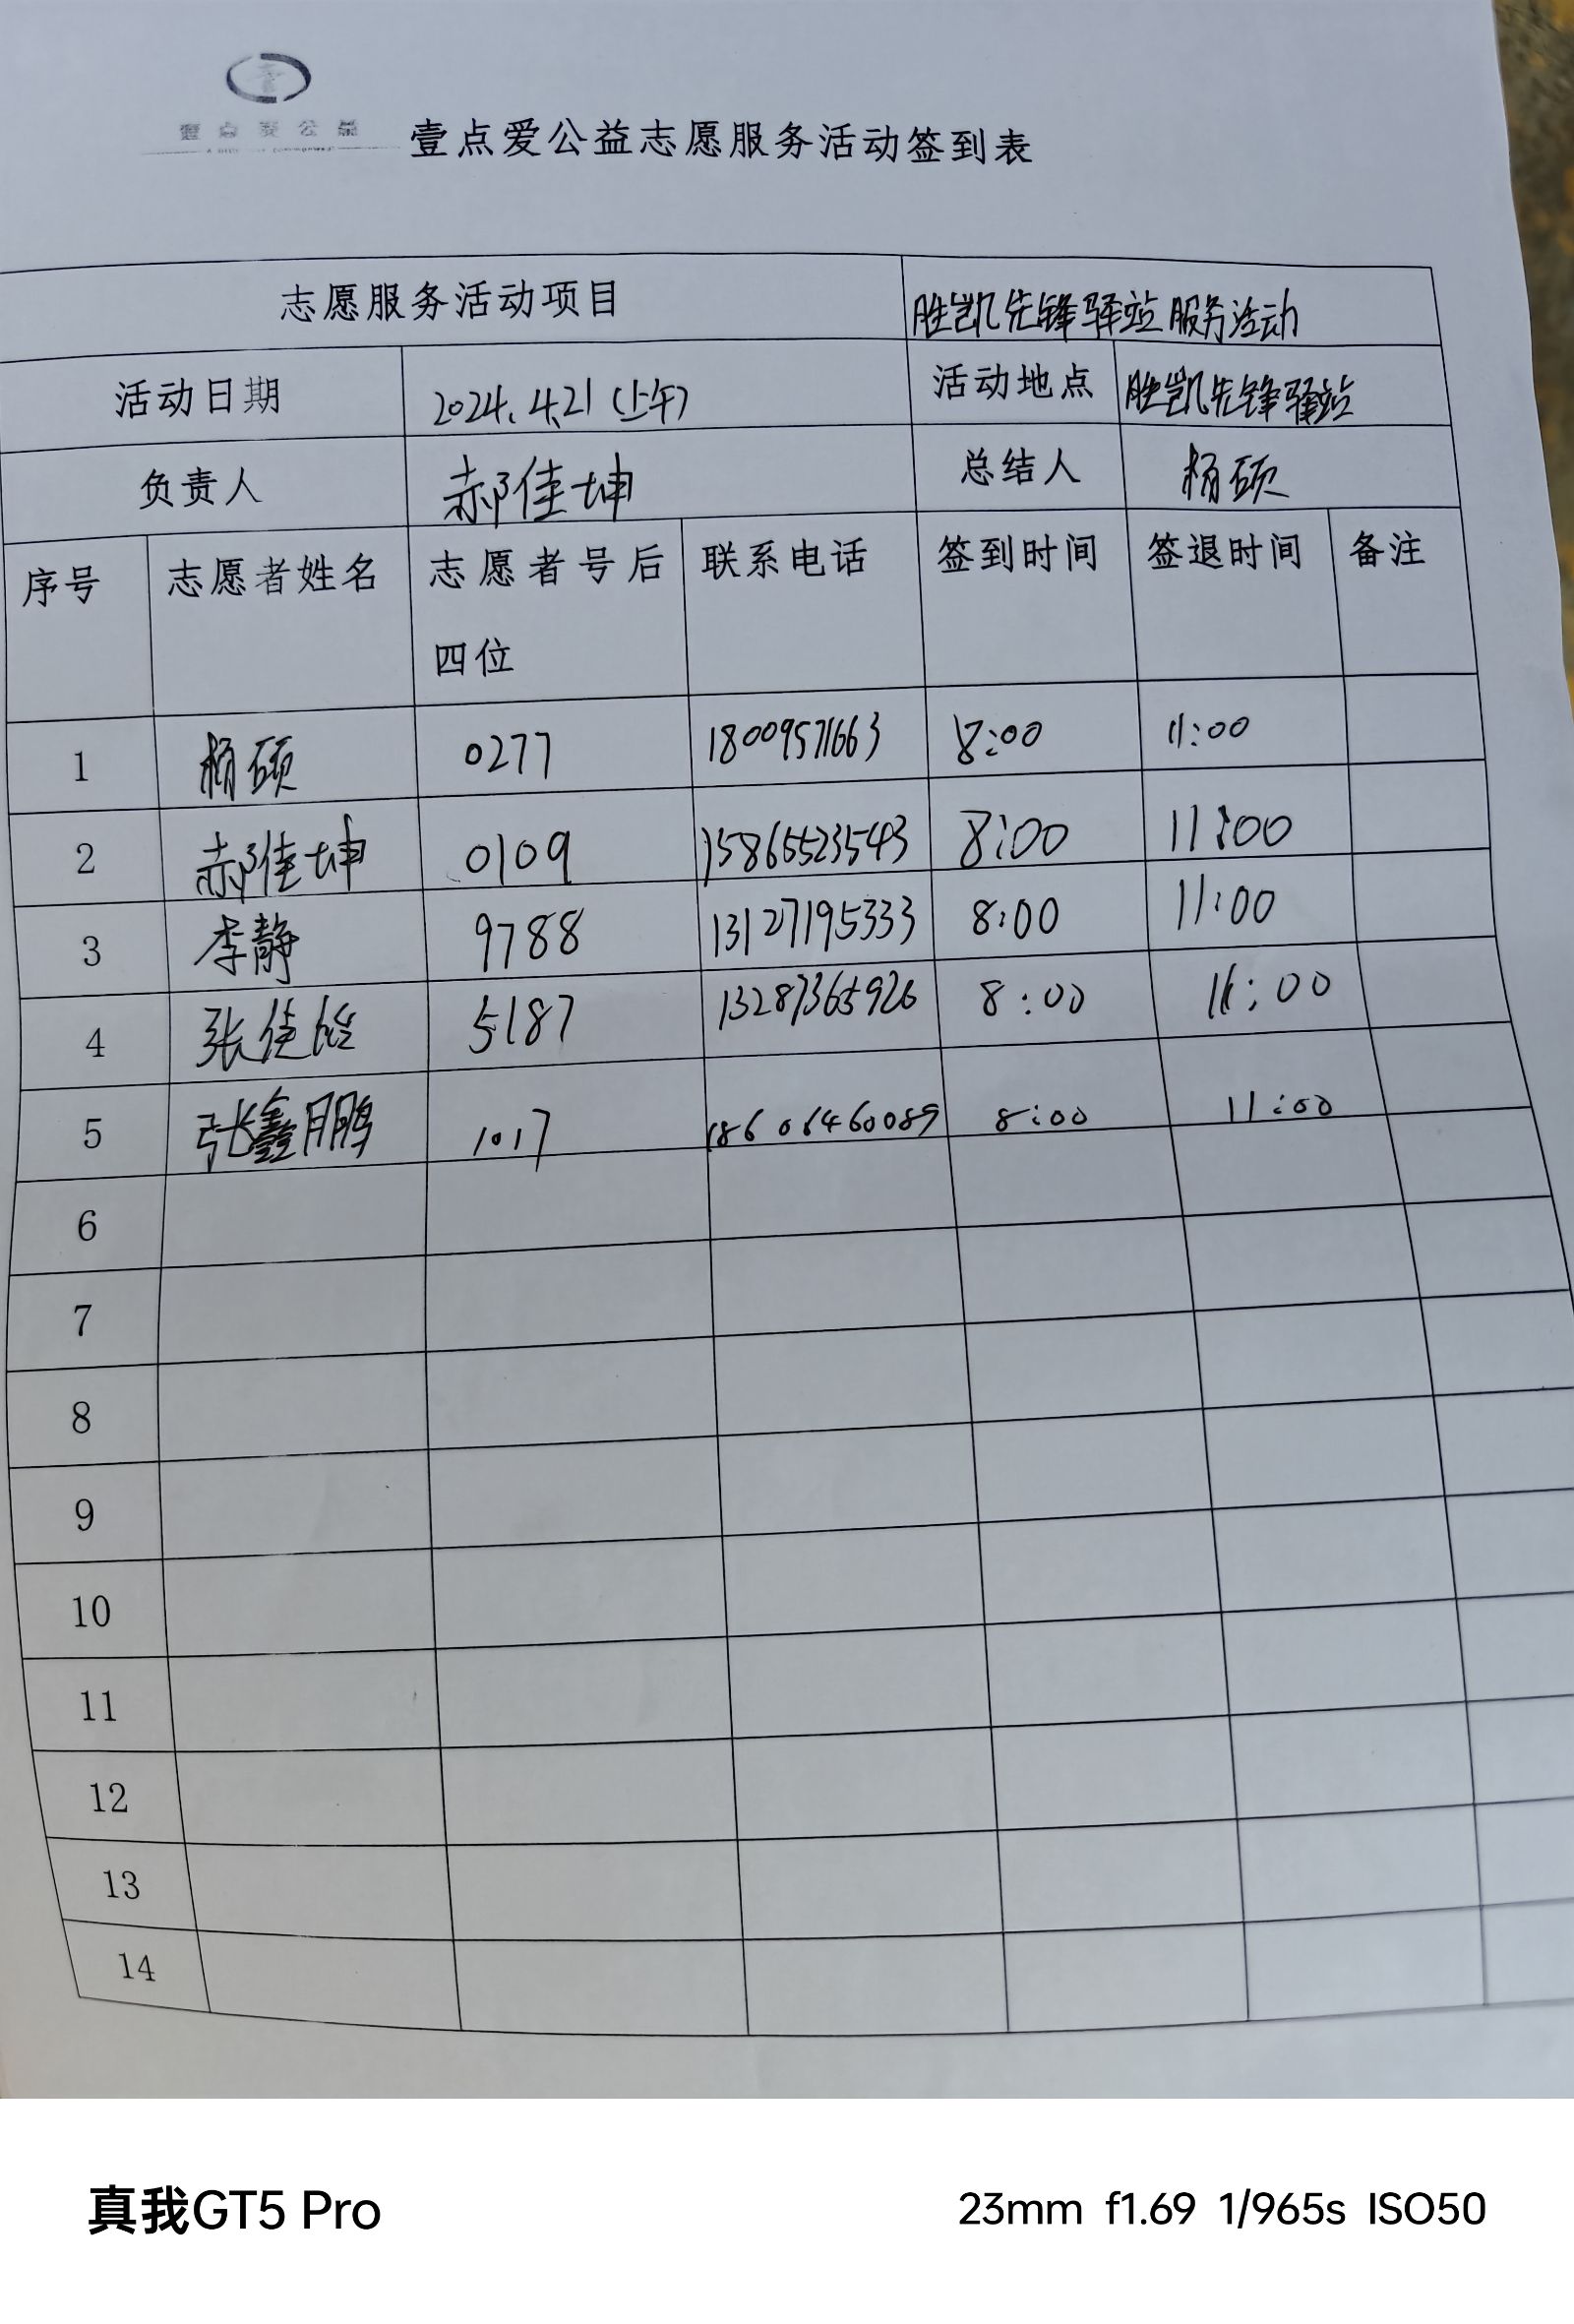 壹点爱公益
壹点爱公益志愿服务活动签到表
志愿服务活动项目 胜凯先锋驿站服务活动
活动日期 2024.4.21(上午) 活动地点 胜凯先锋驿站
负责人 郝佳坤 总结人 杨硕
序号 志愿者姓名 志愿者号后 联系电话 签到时间 签退时间 备注
四位
1 杨硕 0277 18009571663 8:00 11:00
2 郝佳坤 0109 15865523543 8:00 11:00
3 李静 9788 13127195333 8:00 11:00
4 张佳怡 5187 13287365926 8:00 11:00
5 张鑫鹏 1017 18606460089 8:00 11:00
6
7
8
9
10
11
12
13
14
真我GT5 Pro 23mm f1.69 1/965s ISO50